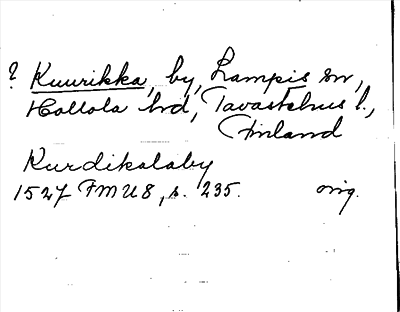 ? Kuurikka, by, Lampis sn,
Hollola hd, Tavastehus l.,
Finland
Kurdikalaby
1527 FMU 8, s. 235. orig.